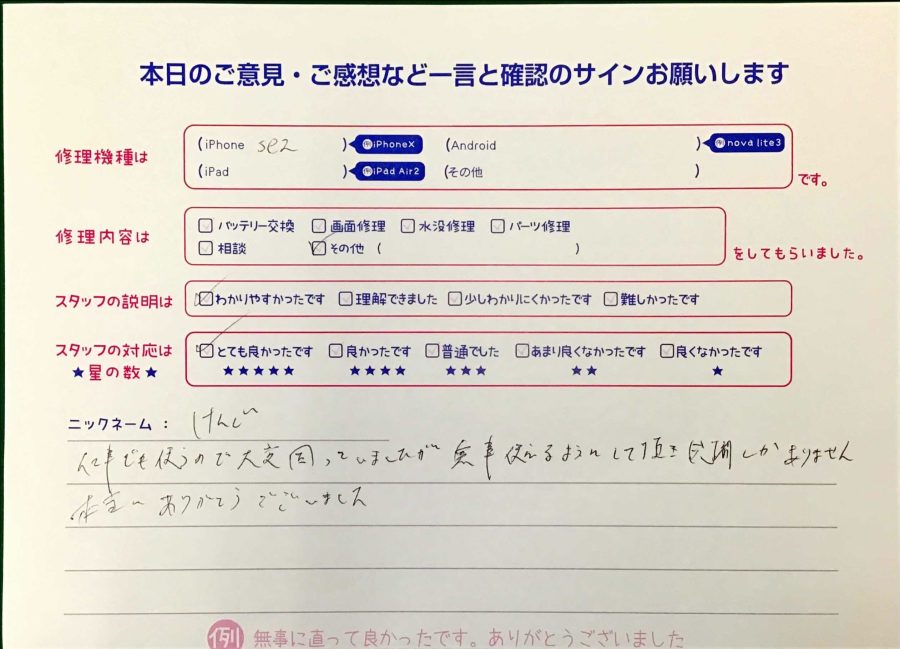 本日のご意見・ご感想など一言と確認のサインお願いします
修理機種は (iPhone se2 ) iPhoneX (Android ) nova lite3
(iPad ) iPad Air2 (その他 ) です。
修理内容は □バッテリー交換 □画面修理 □水没修理 □パーツ修理
□相談 ☑その他 ( ) をしてもらいました。
スタッフの説明は ☑わかりやすかったです □理解できました □少しわかりにくかったです □難しかったです
スタッフの対応は ☑とても良かったです □良かったです □普通でした □あまり良くなかったです □良くなかったです
★星の数★ ★★★★★ ★★★★ ★★★ ★★ ★
ニックネーム： けんじ
仕事でも使うので大変困っていましたが無事使えるようにして頂き感謝しかありません
本当にありがとうございました
例 無事に直って良かったです。ありがとうございました